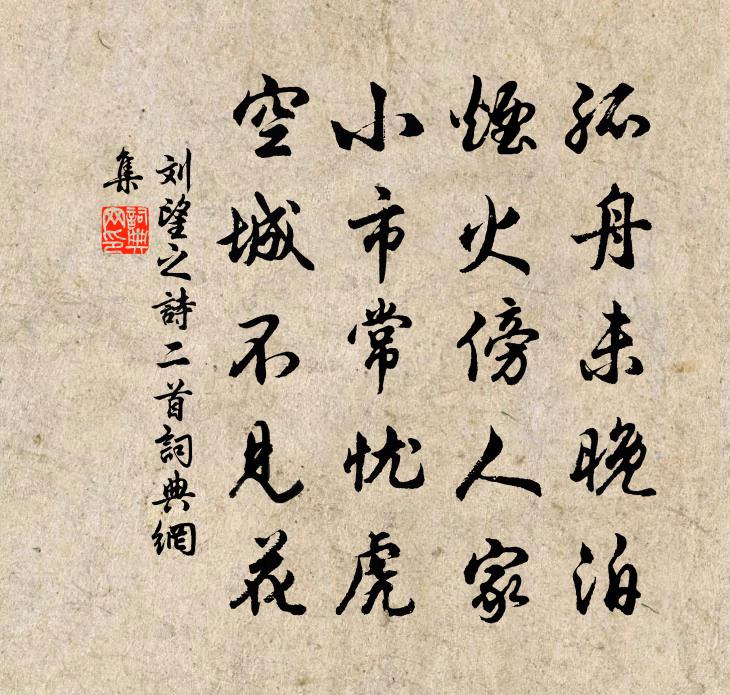 孤舟未晚泊
煙火傍人家
小市常忧虎
空城不見花
刘望之詩二首詞典網
集
詞典
网印